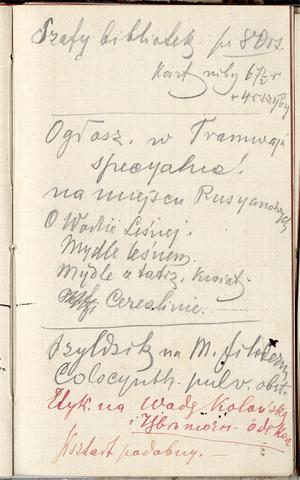 Szafy bibliotek. po 80 rs.
Kart niby 6½ r
+ 4 r szyby
Ogłosz. w Tramwaju
specyalne!
na miejscu Rusyanowych
O Wodzie Leśnej.
Mydle leśnem.
Mydle z tatrz. kwiat.
Cerealinie.
Szyldzik na M.
Colocynth. pulv. obit.
Etyk. na Wodę Kolońską
i
Kształt podobny. —